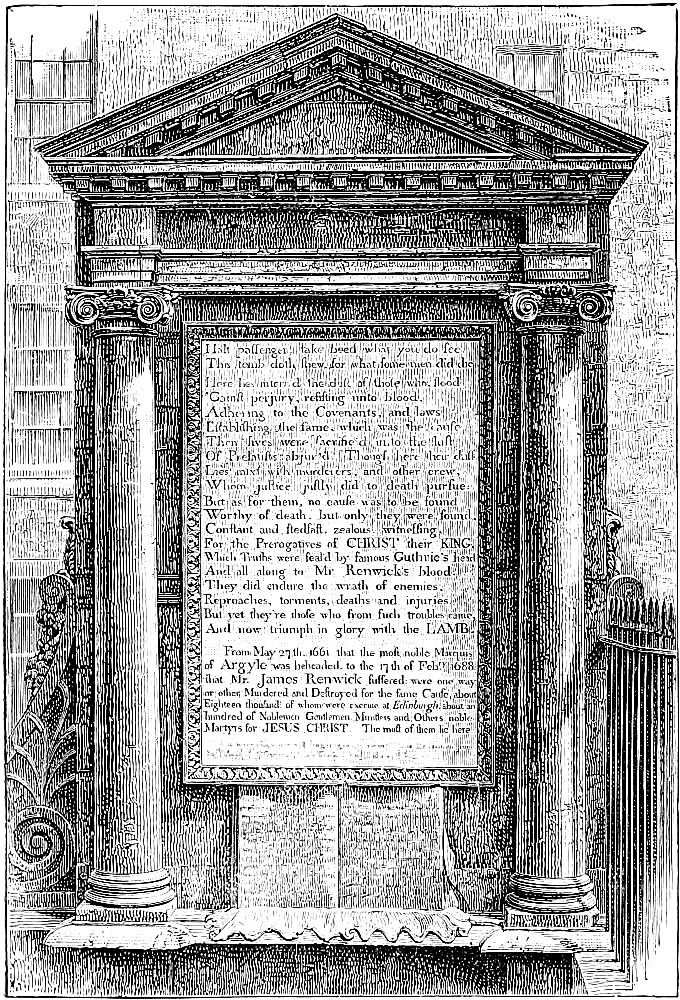 Halt passenger, take heed what you do see,
This tomb doth shew, for what some men did die
Here lies interr'd the dust of those who stood
'Gainst perjury, resisting unto blood,
Adhering to the Covenants, and laws
Establishing the same, which was the cause
Their lives were sacrific'd unto the lust
Of Prelatists abjur'd. Though here their dust
Lies mixt with murderers, and other crew,
Whom justice justly did to death pursue:
But as for them, no cause was to be found
Worthy of death, but only they were found,
Constant and stedfast, zealous, witnessing,
For the Prerogatives of CHRIST their KING.
Which Truths were seal'd by famous Guthrie's head
And all along to Mr. Renwick's blood.
They did endure the wrath of enemies.
Reproaches, torments, deaths and injuries.
But yet they're those who from such troubles came,
And now triumph in glory with the LAMB.
From May 27th, 1661 that the most noble Marquis
of Argyle was beheaded, to the 17th of Febry 1688
that Mr. James Renwick suffered: were one way
or other Murdered and Destroyed for the same Cause, about
Eighteen thousand: of whom were execute at Edinburgh, about an
hundred of Noblemen Gentlemen, Ministers and Others, noble
Martyrs for JESUS CHRIST. The most of them lie here